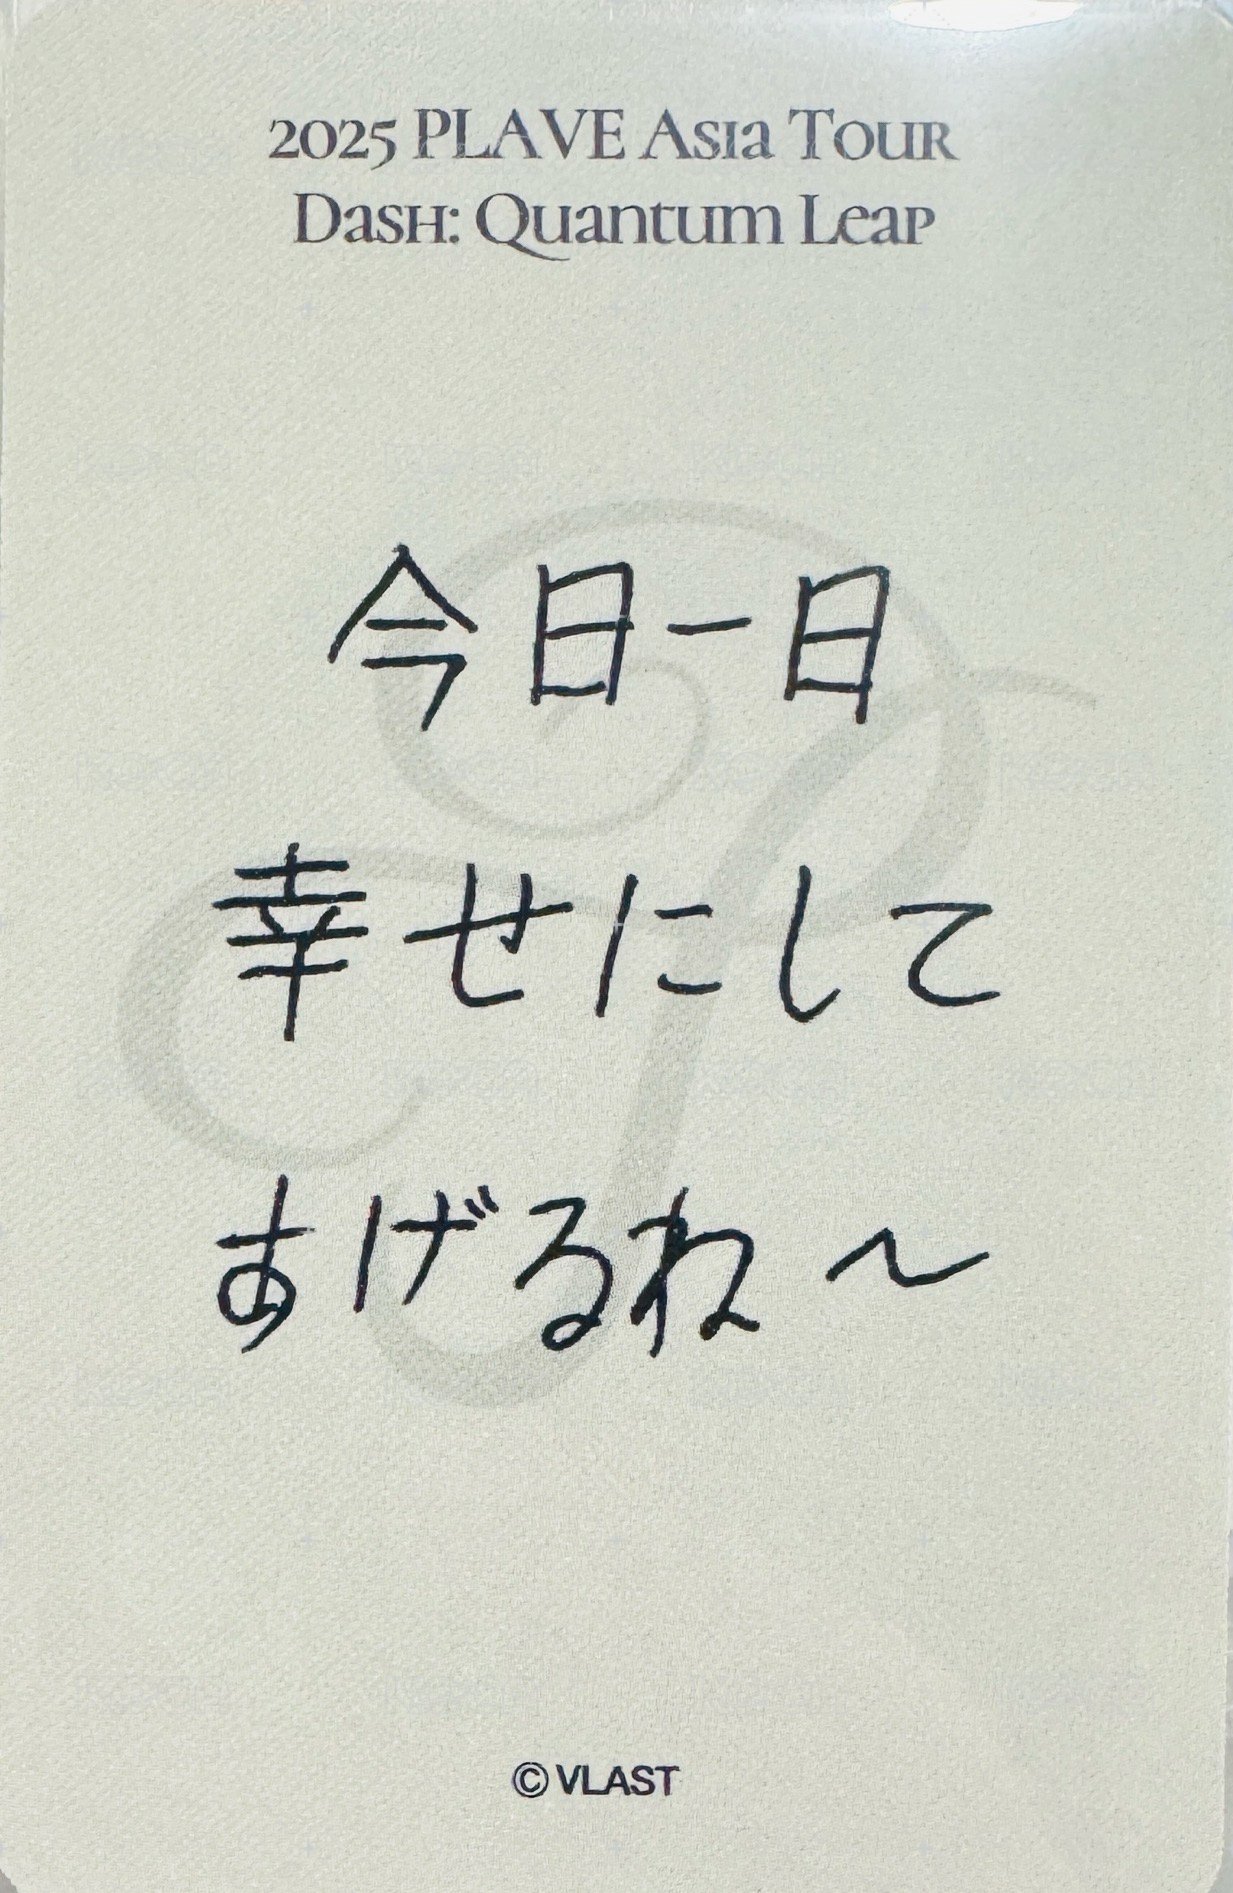 2025 PLAVE Asia Tour
Dash: Quantum Leap
今日一日
幸せにして
あげるね～
© VLAST